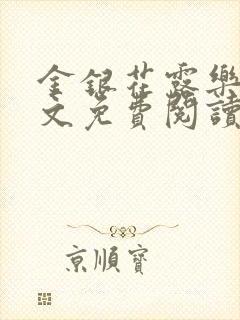 金銀花露樂
文免費閱讀
京順寶